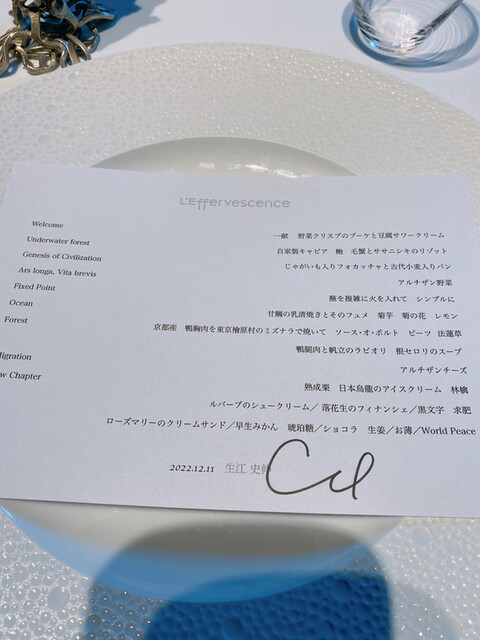 L'Effervescence
Welcome 一献 野菜クリスプのブーケと豆腐サワークリーム
Underwater forest 自家製キャビア 鮑 毛蟹とササニシキのリゾット
Genesis of Civilization じゃがいも入りフォカッチャと古代小麦入りパン
Ars longa, Vita brevis アルチザン野菜
Fixed Point 蕪を複雑に火を入れて シンプルに
Ocean 甘鯛の乳清焼きとそのフュメ 菊芋 菊の花 レモン
Forest 京都産 鴨胸肉を東京檜原村のミズナラで焼いて ソース・オ・ポルト ビーツ 法蓮草
鴨腿肉と帆立のラビオリ 根セロリのスープ
Migration アルチザンチーズ
Chapter 熟成栗 日本烏龍のアイスクリーム 林檎
ルバーブのシュークリーム／落花生のフィナンシェ／黒文字 求肥
ローズマリーのクリームサンド／早生みかん 琥珀糖／ショコラ 生姜／お薄／World Peace
2022.12.11 生江 史伸